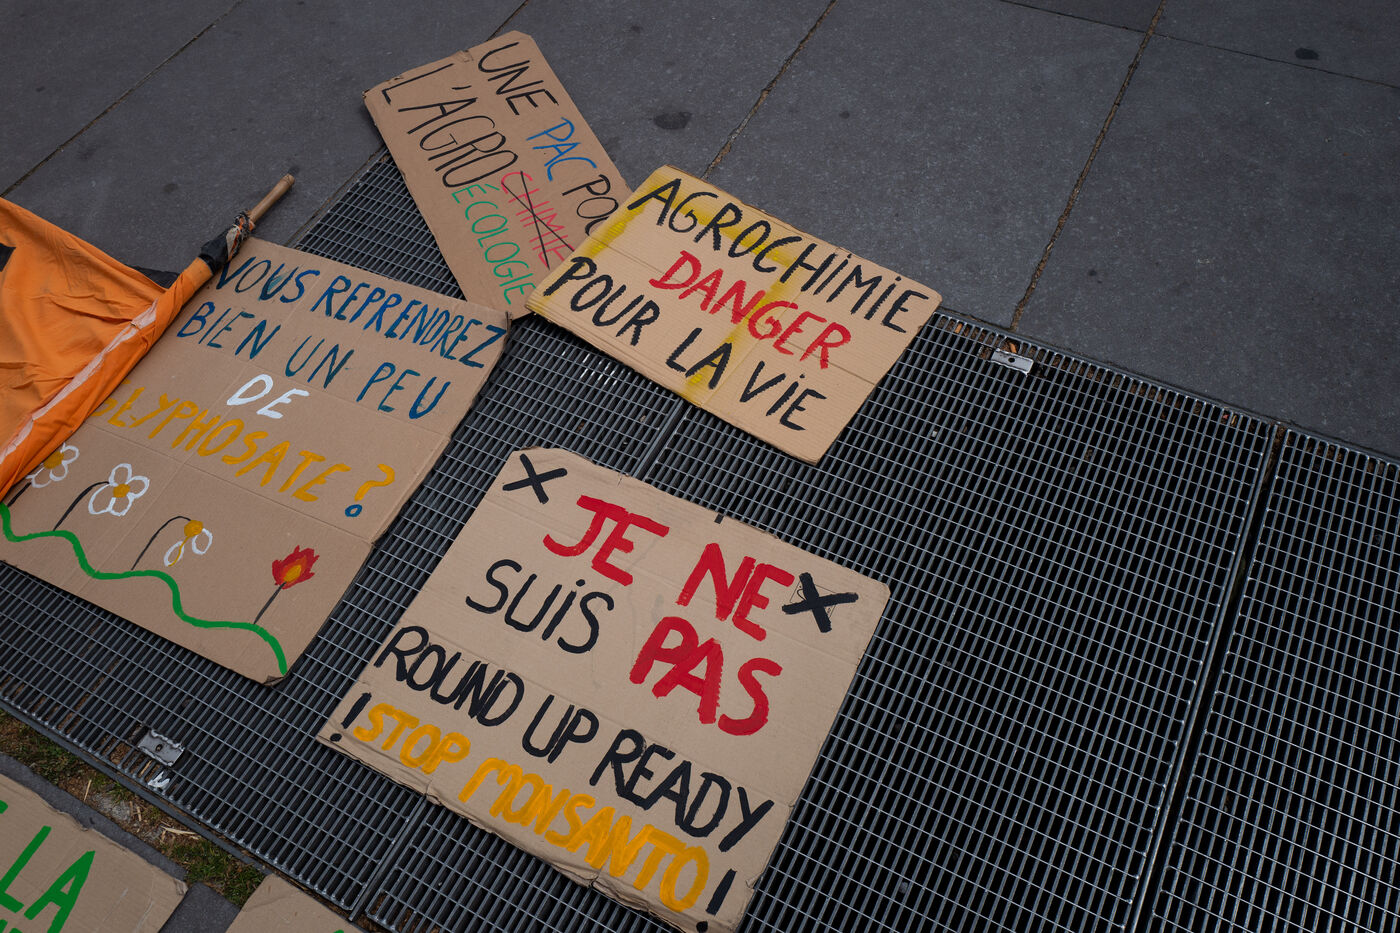 UNE PAC POU
L'AGRO CHIMIE
ÉCOLOGIE
AGROCHIMIE
DANGER
POUR LA VIE
VOUS REPRENDREZ
BIEN UN PEU
DE
GLYPHOSATE ?
JE NE
SUIS PAS
ROUND UP READY
! STOP MONSANTO !
LA